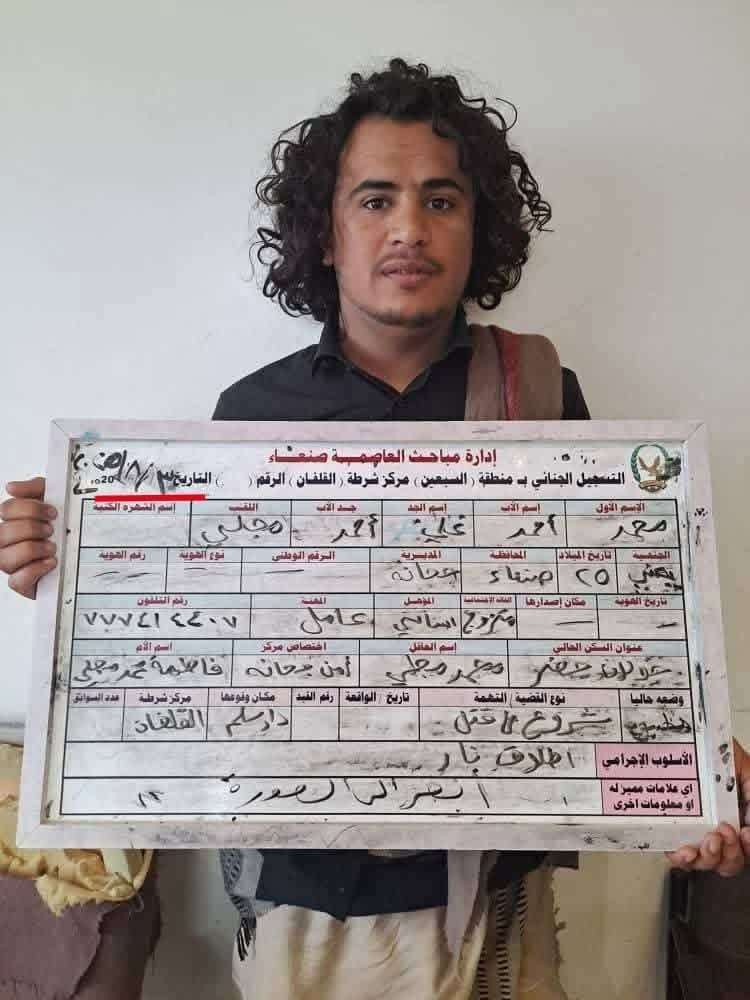 إدارة مباحث العاصمة صنعاء
التسجيل الجنائي بـ منطقة ( السبعين ) مركز شرطة ( القلفان ) الرقم ( ) التاريخ ٣ / ٨ /
الإسم الأول إسم الأب إسم الجد جد الأب اللقب إسم الشهره الكنية
محمد أحمد علي أحمد مجلي
الجنسية تاريخ الميلاد المحافظة المديرية الرقم الوطني نوع الهوية رقم الهوية
يمني ٢٥ صنعاء جحانه
تاريخ الهوية مكان إصدارها الحالة الإجتماعية المؤهل المهنة رقم التلفون
متزوج اساسي عامل ٧٧٧٤١٤٤٠٧
عنوان السكن الحالي إسم العاقل اختصاص مركز اسم الأم
محمد مجلي أمن جحانه فاطمة محمد مجلي
وضعه حاليا نوع القضية / التهمة تاريخ / الواقعة رقم القيد مكان وقوعها مركز شرطة عدد السوابق
مضبوط شروع في قتل دار سلم القلفان
الأسلوب الإجرامي اطلاق نار
اي علامات مميزه له او معلومات اخرى انظر الى الصورة